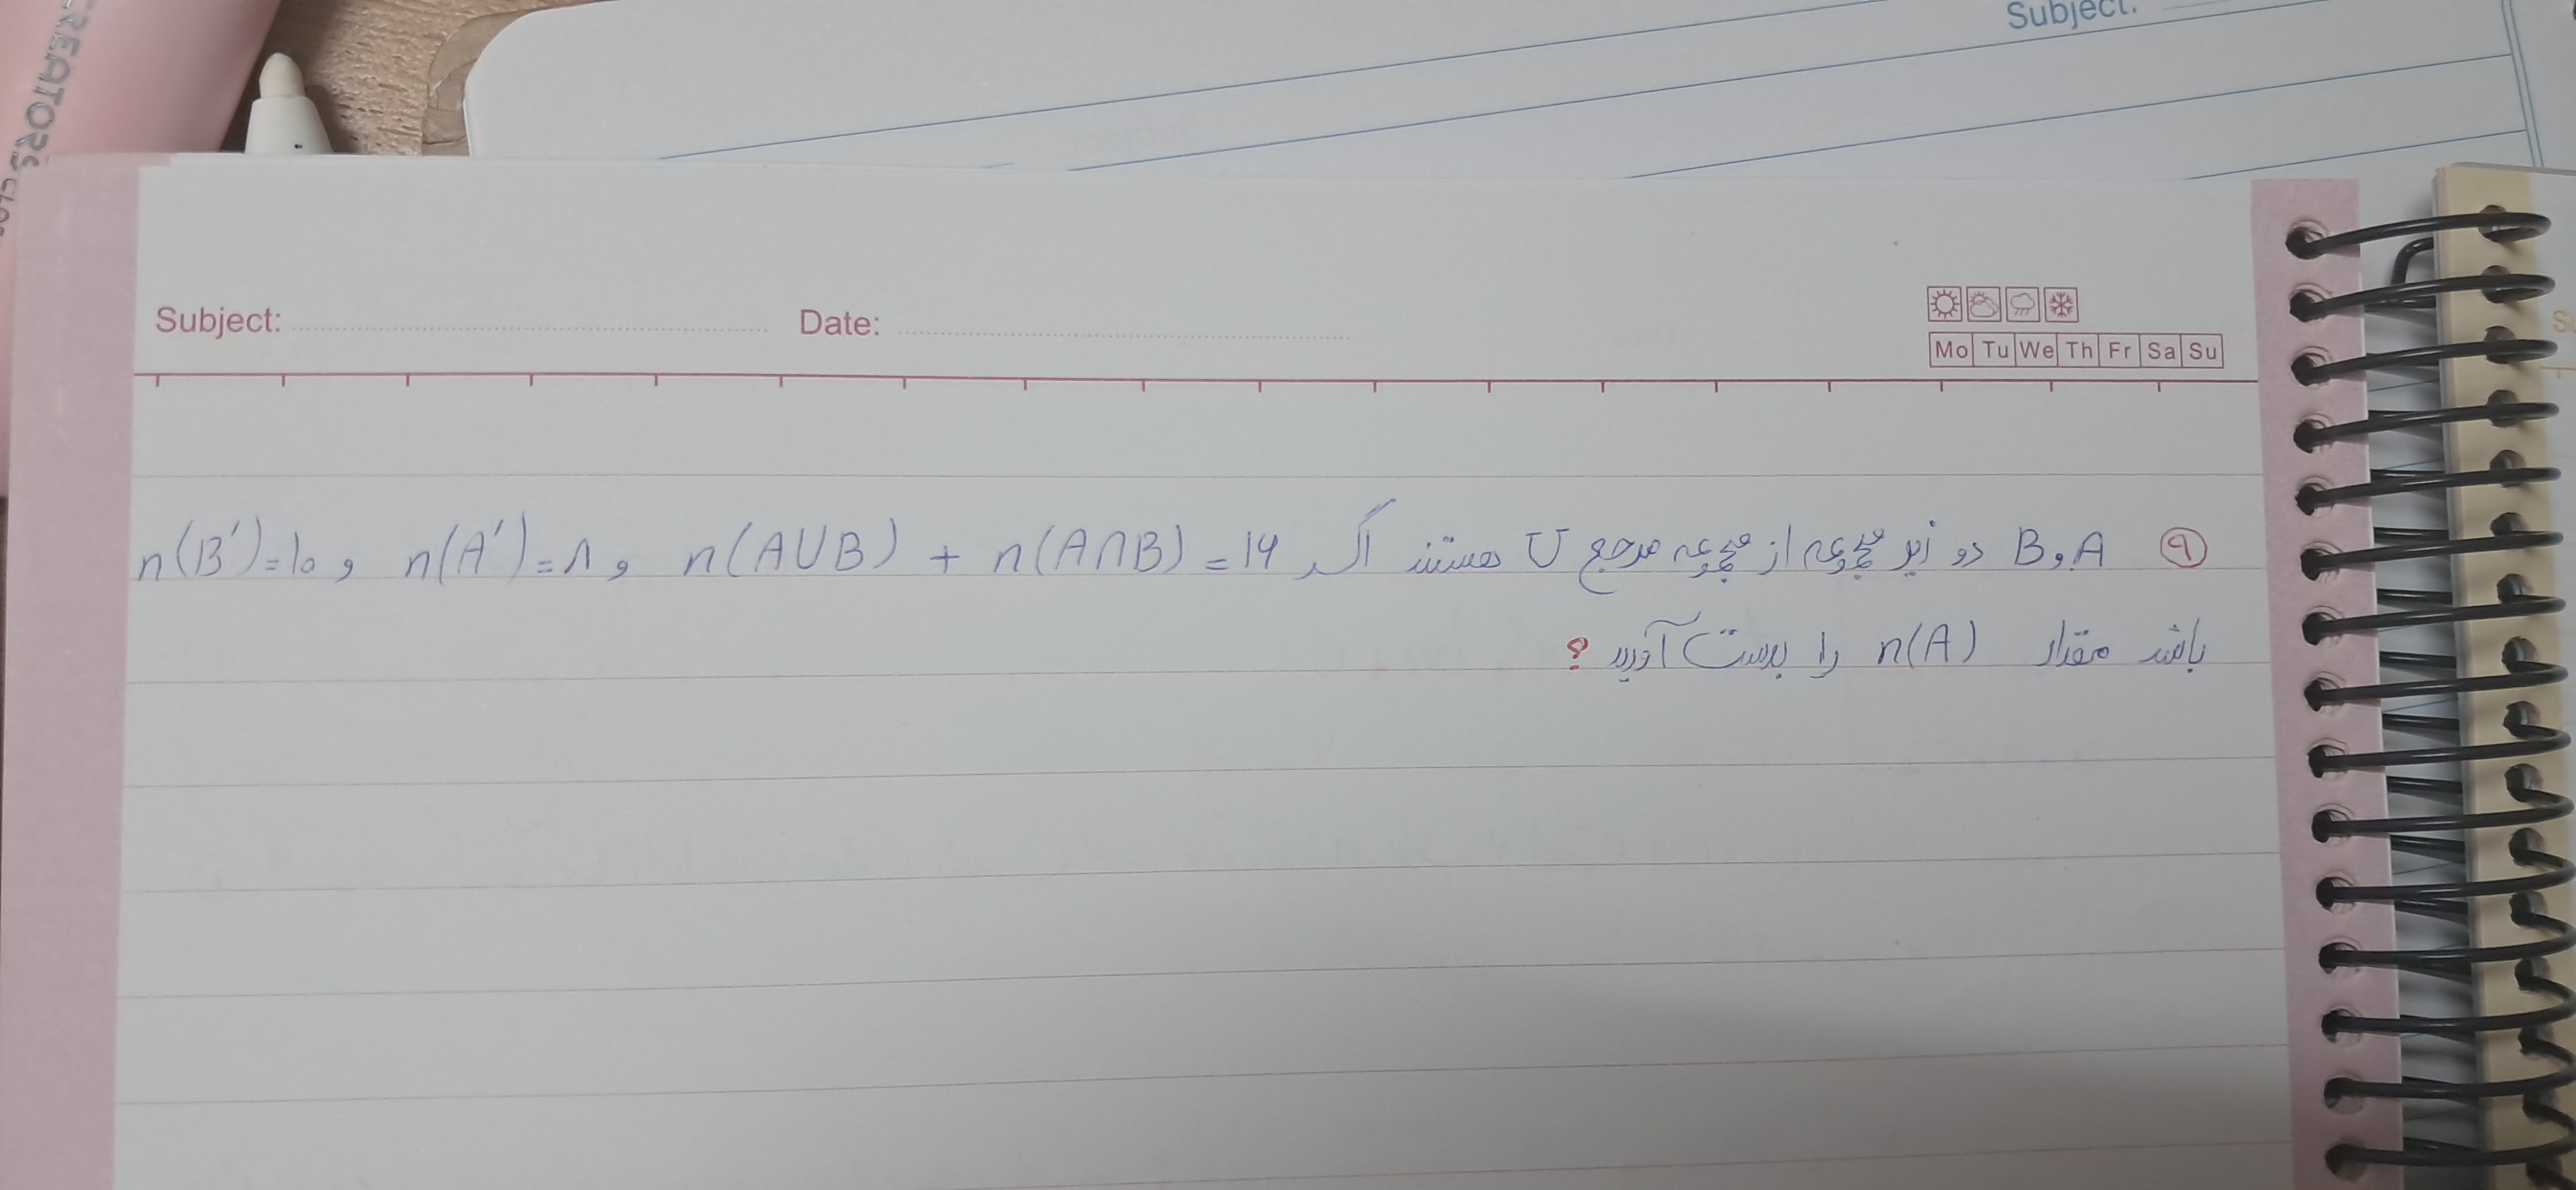 CREATORS
Subject:
Subject: Date:
Mo Tu We Th Fr Sa Su
۹ A و B دو زیر مجموعه از مجموعه مرجع U هستند اگر n(A∪B) + n(A∩B) = ۱۶ و n(A′) = ۸ و n(B′) = ۱۰
باشد مقدار n(A) را بدست آورید ؟